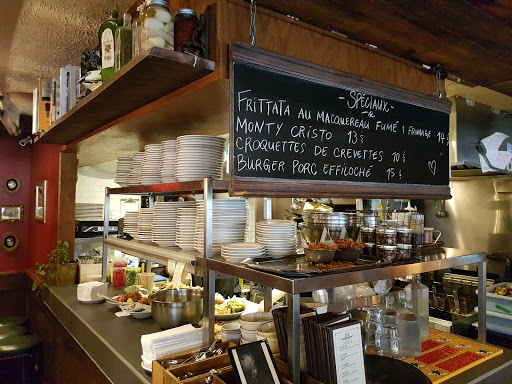 -SPÉCIAUX-
FRITTATA AU MACQUEREAU FUMÉ & FROMAGE 14$
MONTY CRISTO 13$
CROQUETTES DE CREVETTES 10$
BURGER PORC EFFILOCHÉ 15$